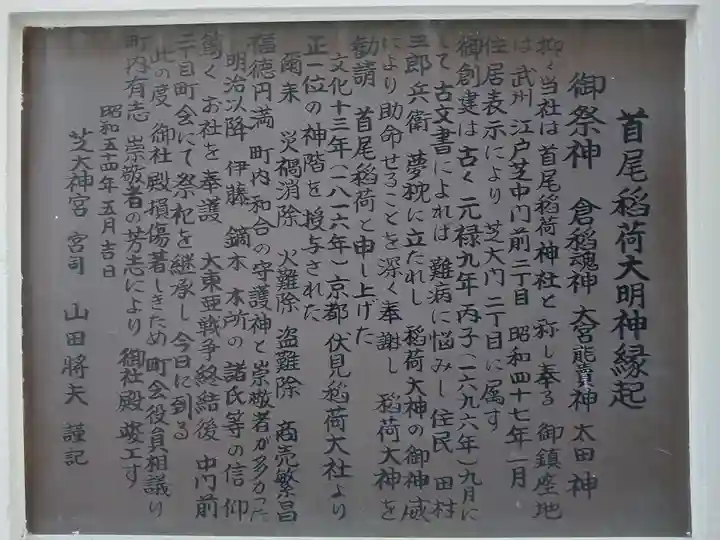 首尾稲荷大明神縁起
御祭神 倉稲魂神 大宮能賣神 太田神
抑々当社は首尾稲荷神社と称し奉る 御鎮座地
は 武州 江戸芝中門前二丁目 昭和四十七年一月
住居表示により 芝大門二丁目に属す
御創建は古く 元禄九年丙子(一六九六年)九月に
して 古文書によれば 難病に悩みし住民 田村
三郎兵衛 夢枕に立たれし 稲荷大神の御神威
により助命せることを深く奉謝し 稲荷大神を
勧請 首尾稲荷と申し上げた
文化十三年(一八一六年)京都 伏見稲荷大社より
正一位の神階を授与された
爾来 災禍消除 火難除 盗難除 商売繁昌
福徳円満 町内和合の守護神と崇敬者が多かった
明治以降 伊藤 鏑木 本所の諸氏等の信仰
篤く お社を奉護 大東亜戦争終結後 中門前
二丁目町会にて祭祀を継承し 今日に到る
此の度 御社殿損傷著しきため町会役員相議り
町内有志 崇敬者の芳志により 御社殿竣工す
昭和五十四年五月吉日
芝大神宮 宮司 山田將夫 謹記